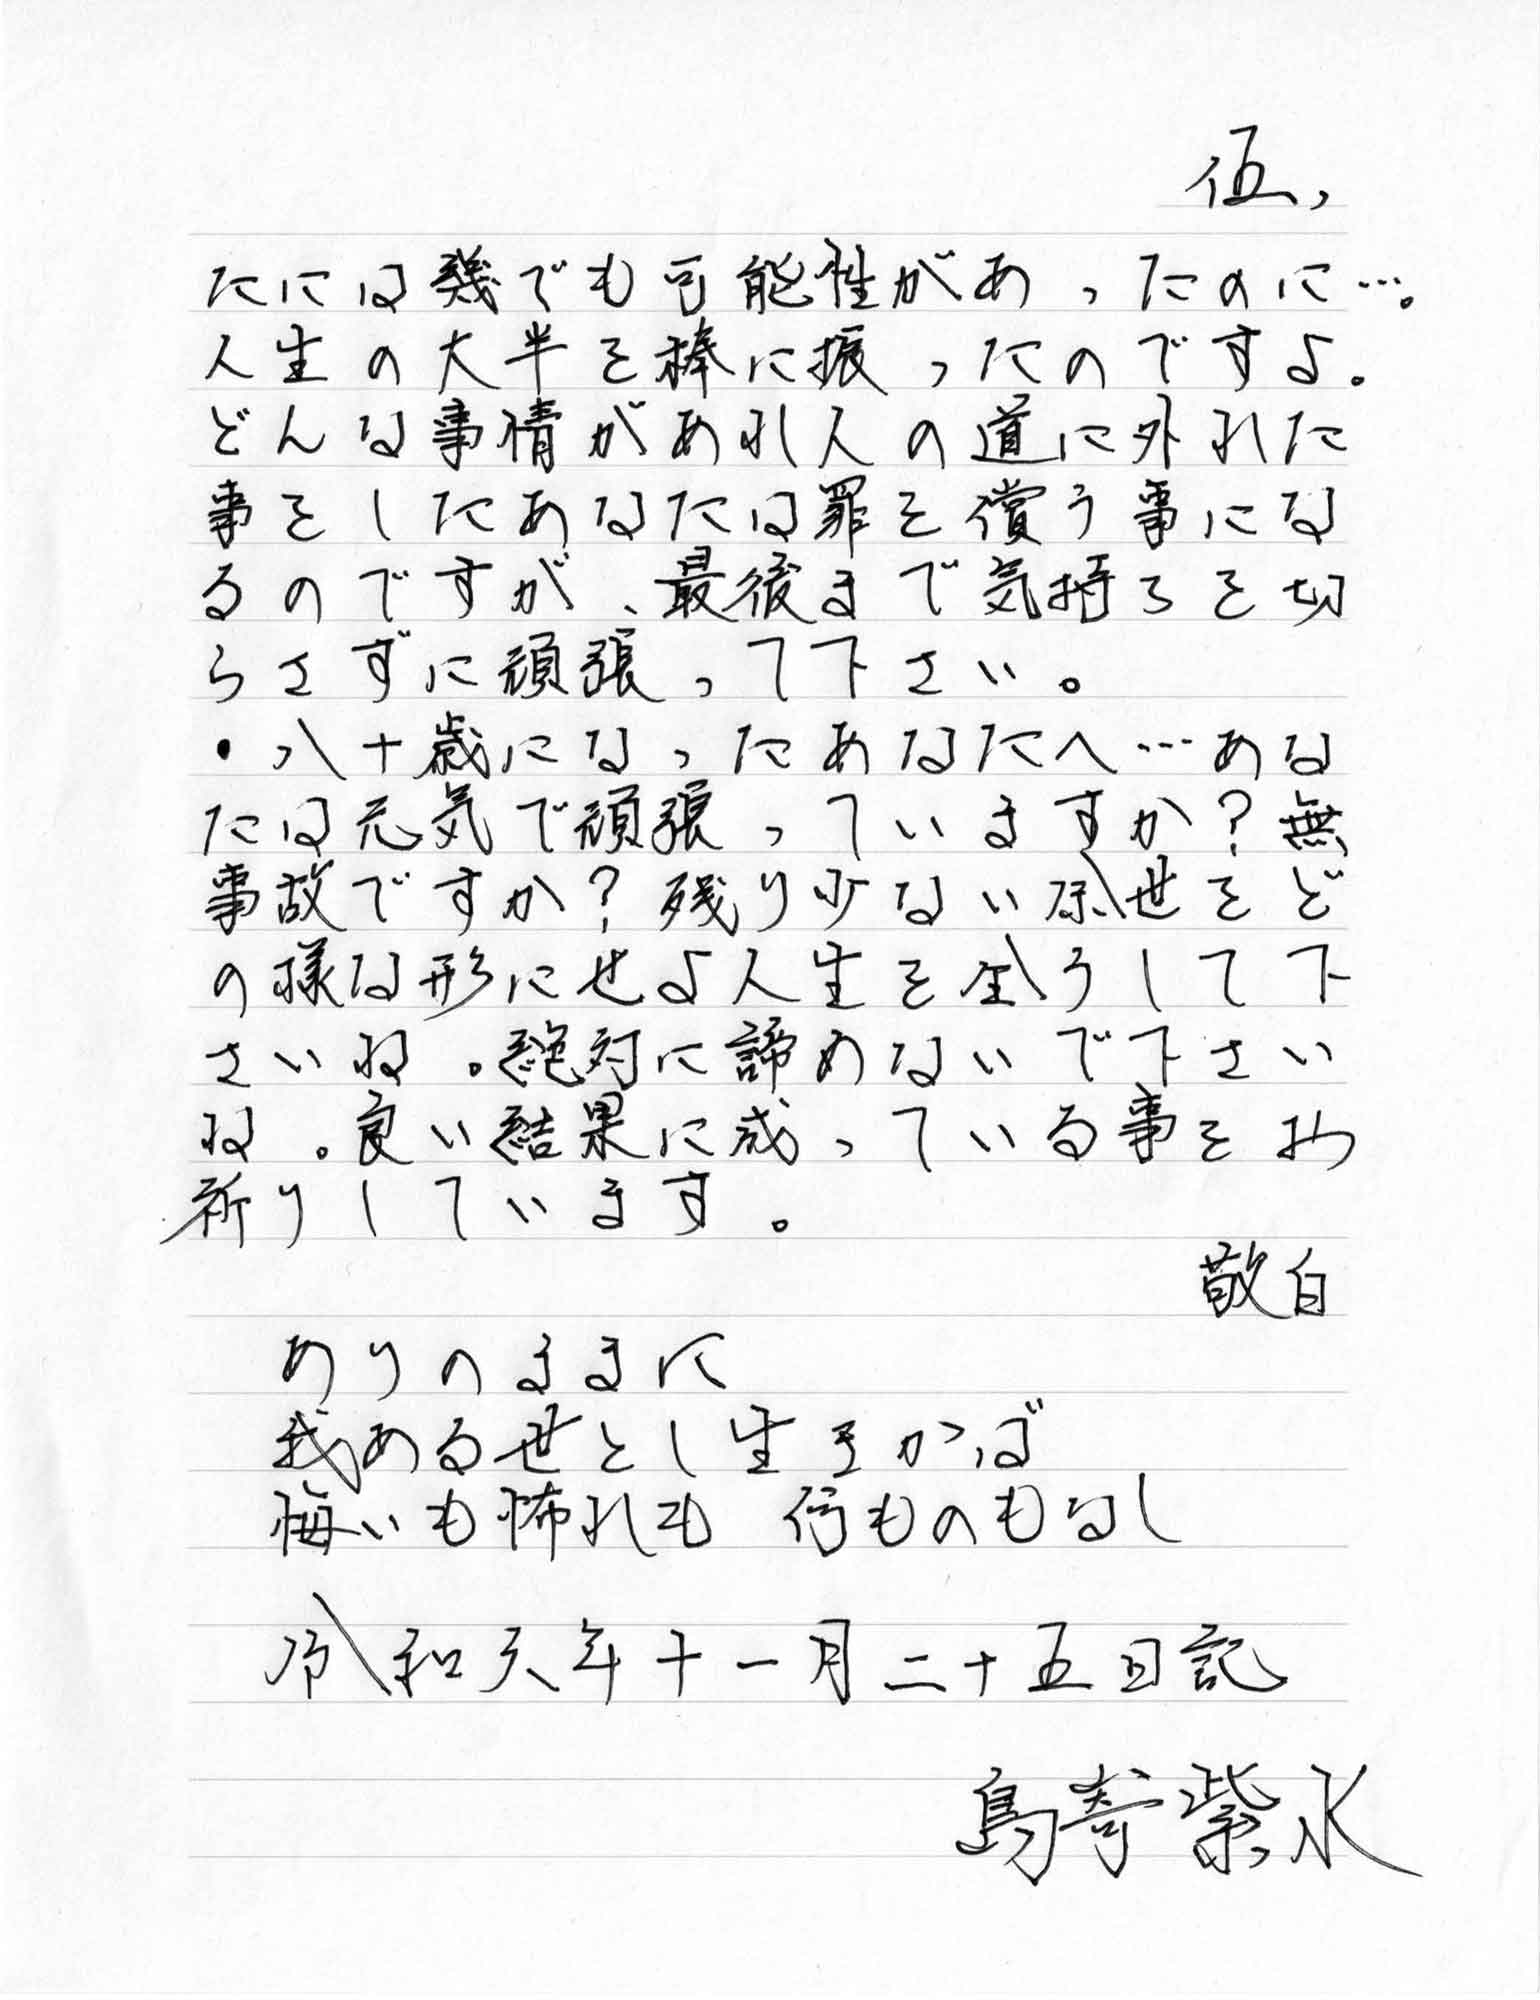 伍、
たには幾でも可能性があったのに…。
人生の大半を棒に振ったのですよ。
どんな事情があれ人の道に外れた
事をしたあなたは罪を償う事にな
るのですが、最後まで気持ちを切
らさずに頑張って下さい。
・八十歳になったあなたへ…あな
たは元気で頑張っていますか?無
事故ですか?残り少ない余世をど
の様な形にせよ人生を全うして下
さいね。絶対に諦めないで下さい
ね。良い結果に成っている事をお
祈りしています。
敬白
ありのままに
我ある世とし生きかば
悔いも怖れも 何ものもなし
令和元年十一月二十五日記
島嵜紫水